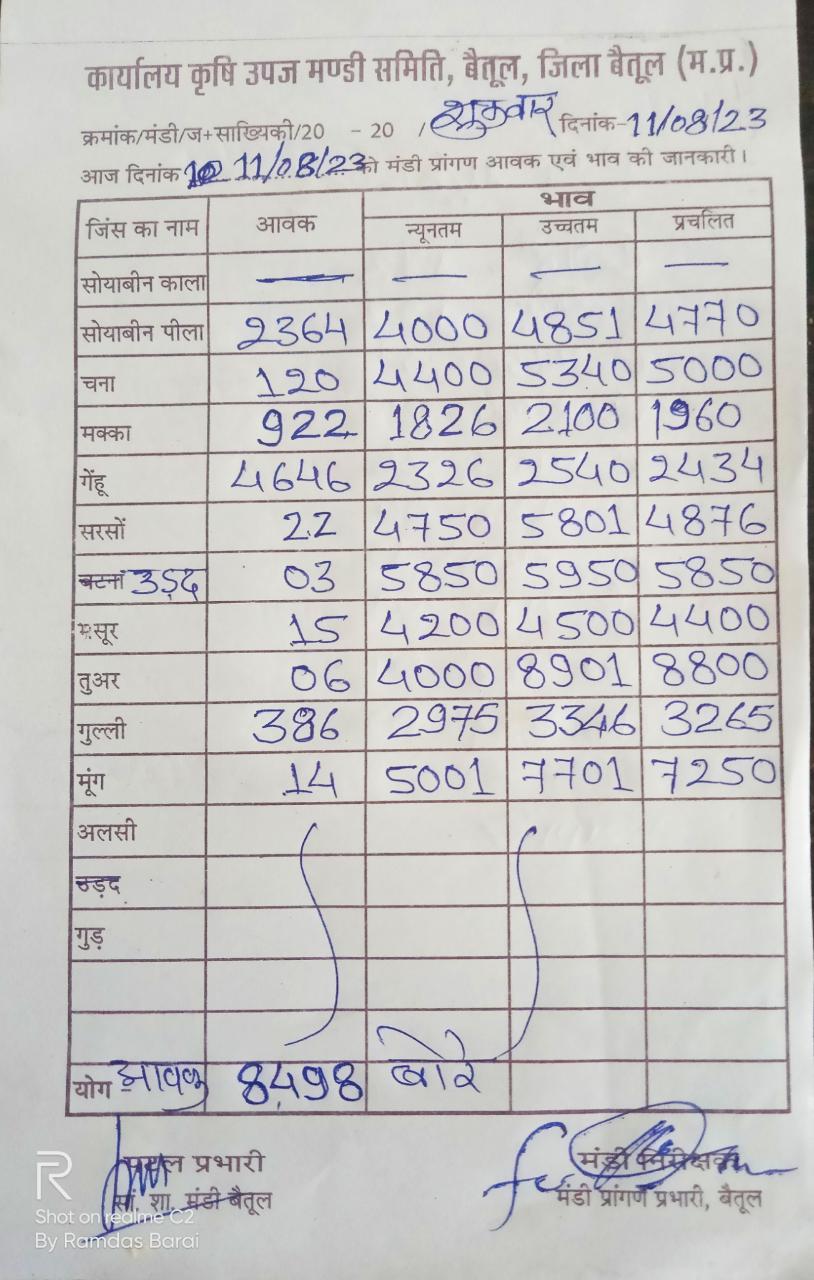 कार्यालय कृषि उपज मण्डी समिति, बैतूल, जिला बैतूल (म.प्र.)
क्रमांक/मंडी/ज+साख्यिकी/20 - 20 / शुक्रवार दिनांक-11/08/23
आज दिनांक 11/08/23 को मंडी प्रांगण आवक एवं भाव की जानकारी।
जिंस का नाम आवक भाव
न्यूनतम उच्चतम प्रचलित
सोयाबीन काला — — — —
सोयाबीन पीला 2364 4000 4851 4770
चना 120 4400 5340 5000
मक्का 922 1826 2100 1960
गेंहू 4646 2326 2540 2434
सरसों 22 4750 5801 4876
बटना उड़द 03 5850 5950 5850
मसूर 15 4200 4500 4400
तुअर 06 4000 8901 8800
गुल्ली 386 2975 3346 3265
मूंग 14 5001 7701 7250
अलसी
उड़द
गुड़
योग आवक 8498 बोरे
प्रभारी मंडी निरीक्षक
सां. शा. मंडी बैतूल मंडी प्रांगण प्रभारी, बैतूल
R
Shot on realme C2
By Ramdas Barai